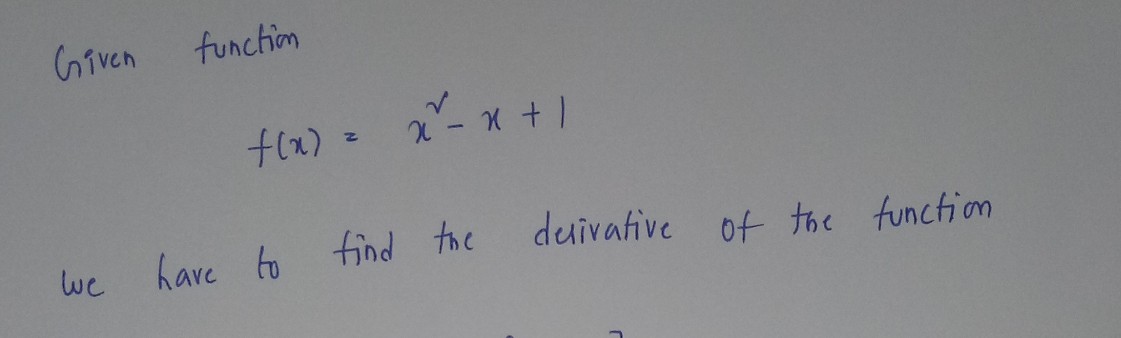 Given function
f(x) = x² - x + 1
we have to find the derivative of the function